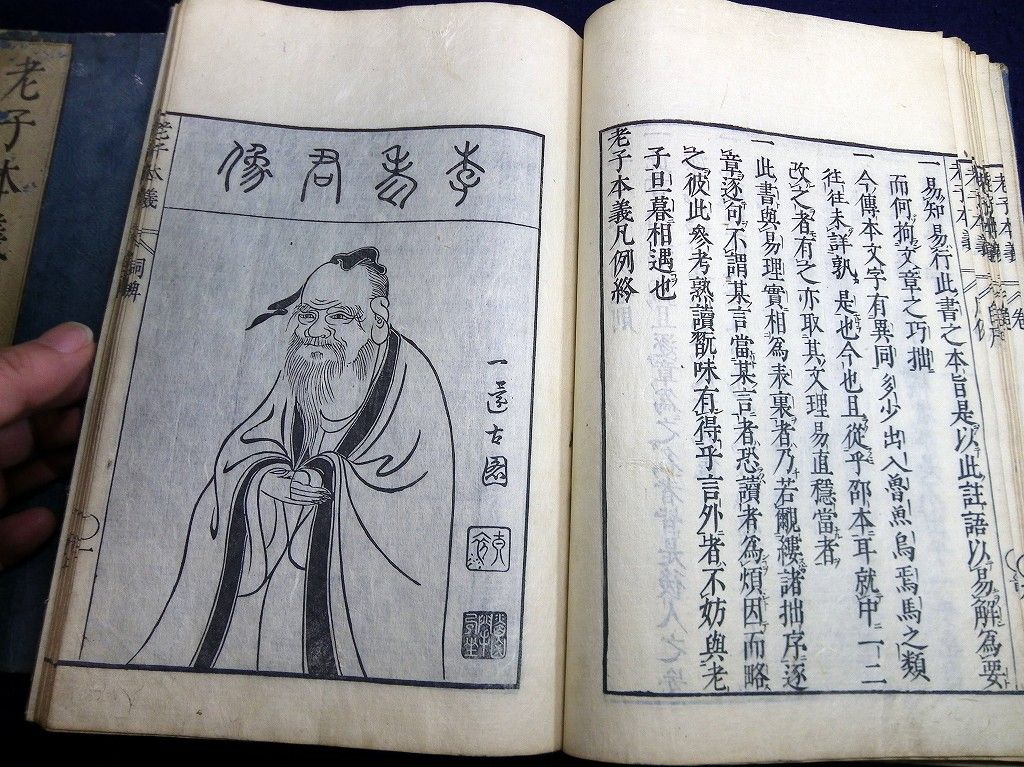 一易知易行此書之本旨是以此註語以易解為要
而何拘文章之巧拙
一今傳本文字有異同多少出入魯魚烏焉馬之類
往往未詳孰是也今也且從乎邵本耳就中一二
改之者有之亦取其文理易直穩當者
一此書與易理實相為表裏者乃若覼縷諸拙序逐
章逐句不謂某言當某言者恐讀者為煩因而略
之彼此參考熟讀翫味有得乎言外者不妨與老
子旦暮相遇也
老子本義凡例終
李老君像
一蓬古圖
老子本義
老子本義